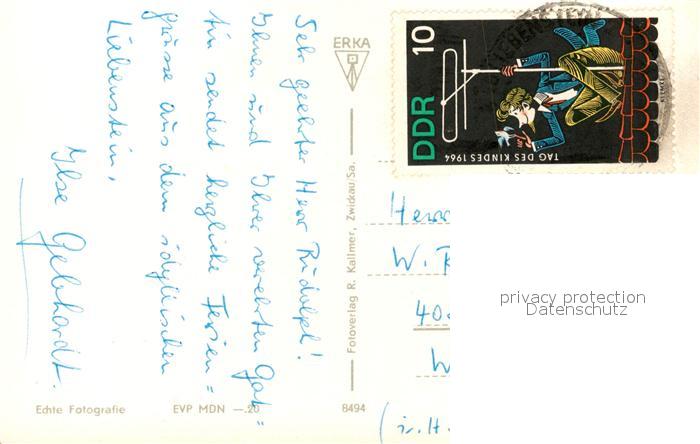 Sehr geehrter Herr Rudolph!
Ihnen und Ihrer verehrten Gat=
tin sendet herzliche Ferien=
grüsse aus dem idyllischen
Liebenstein,
Ilse Gebhardt.
ERKA
Fotoverlag R. Kallmer, Zwickau/Sa.
Echte Fotografie
EVP MDN —.20
8494
DDR 10
TAG DES KINDES 1964
Herr
W. R
40
W
(i. H.
privacy protection
Datenschutz